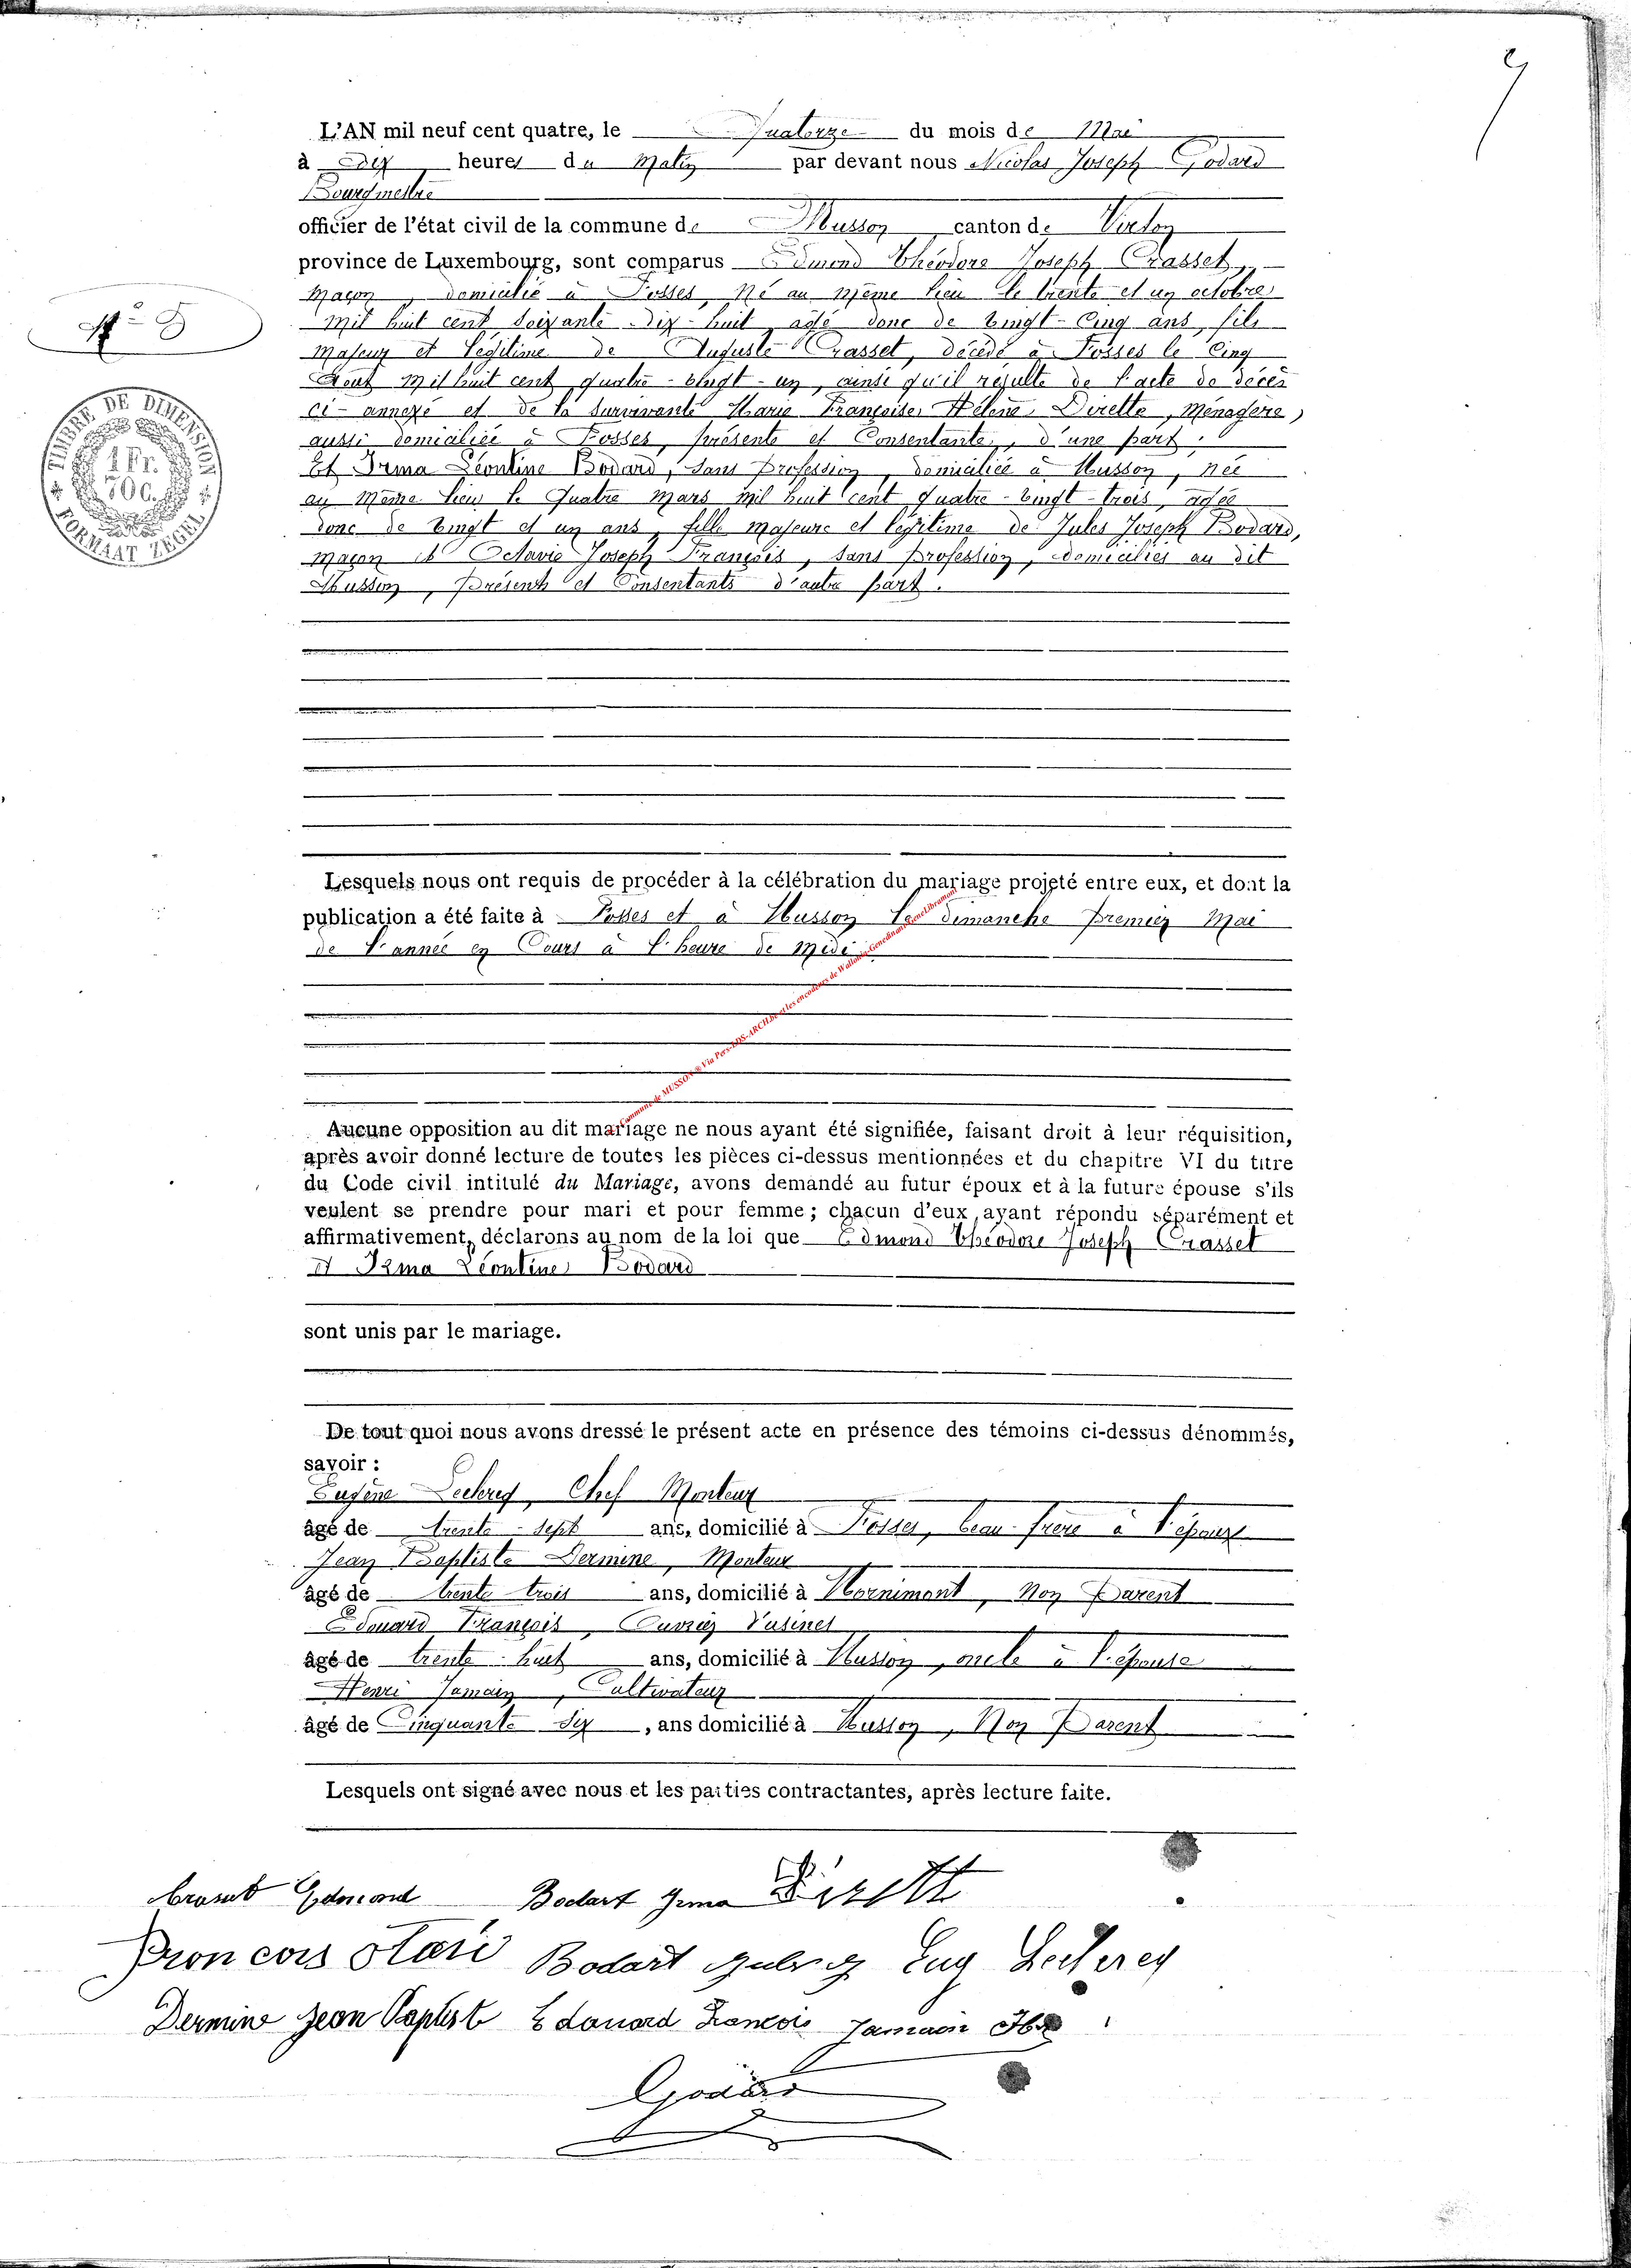 9
L'AN mil neuf cent quatre, le Quatorze du mois de Mai
à Dix heures du Matin par devant nous Nicolas Joseph Godard
Bourgmestre
officier de l'état civil de la commune de Musson canton de Virton
province de Luxembourg, sont comparus Edmond Théodore Joseph Crasset,
Maçon, domicilié à Fosses, Né au même lieu le trente et un octobre
mil huit cent soixante-dix-huit, agé donc de vingt-cinq ans, fils
Majeur et Légitime de Auguste Crasset, décédé à Fosses le Cinq
Aout Mil huit cent quatre-vingt-un, ainsi qu'il résulte de l'acte de décès
ci-annexé et de la survivante Marie Françoise Hélène Dirette, Ménagère,
aussi domiciliée à Fosses, présente et Consentante, d'une part.
Et Irma Léontine Bodard, Sans Profession, domiciliée à Musson, née
au Même lieu le Quatre Mars Mil huit cent quatre-vingt-trois, agée
donc de Vingt et un ans, fille majeure et légitime de Jules Joseph Bodard,
Maçon et Octavie Joseph François, sans profession, domiciliés au dit
Musson, Présents et Consentants d'autre part.
N° 8
TIMBRE DE DIMENSION
1 Fr.
70 C.
FORMAAT ZEGEL
Lesquels nous ont requis de procéder à la célébration du mariage projeté entre eux, et dont la
publication a été faite à Fosses et à Musson Le dimanche Premier Mai
de l'année en Cours à l'heure de Midi
Commune de MUSSON © Via Pers-LDS-ARCH.be et les encodeurs de Wallonie-Genedinant-GeneLibramont
Aucune opposition au dit mariage ne nous ayant été signifiée, faisant droit à leur réquisition,
après avoir donné lecture de toutes les pièces ci-dessus mentionnées et du chapitre VI du titre
du Code civil intitulé du Mariage, avons demandé au futur époux et à la future épouse s'ils
veulent se prendre pour mari et pour femme; chacun d'eux ayant répondu séparément et
affirmativement, déclarons au nom de la loi que Edmond Théodore Joseph Crasset
et Irma Léontine Bodard
sont unis par le mariage.
De tout quoi nous avons dressé le présent acte en présence des témoins ci-dessus dénommés,
savoir :
Eugène Leclercq, Chef Monteur
âgé de trente-sept ans, domicilié à Fosses, beau-frère à l'époux
Jean Baptiste Dermine, Monteur
âgé de trente trois ans, domicilié à Hornimont, Non Parent
Edouard François, Ouvrier d'usines
âgé de trente-huit ans, domicilié à Musson, oncle à l'épouse
Henri Jamain, Cultivateur
âgé de Cinquante Six, ans domicilié à Musson, Non Parent
Lesquels ont signé avec nous et les parties contractantes, après lecture faite.
Crasset Edmond Bodart Irma
Bodart Eug Leclercq
Dermine Jean Baptist Edouard Francois Jamain
Godard